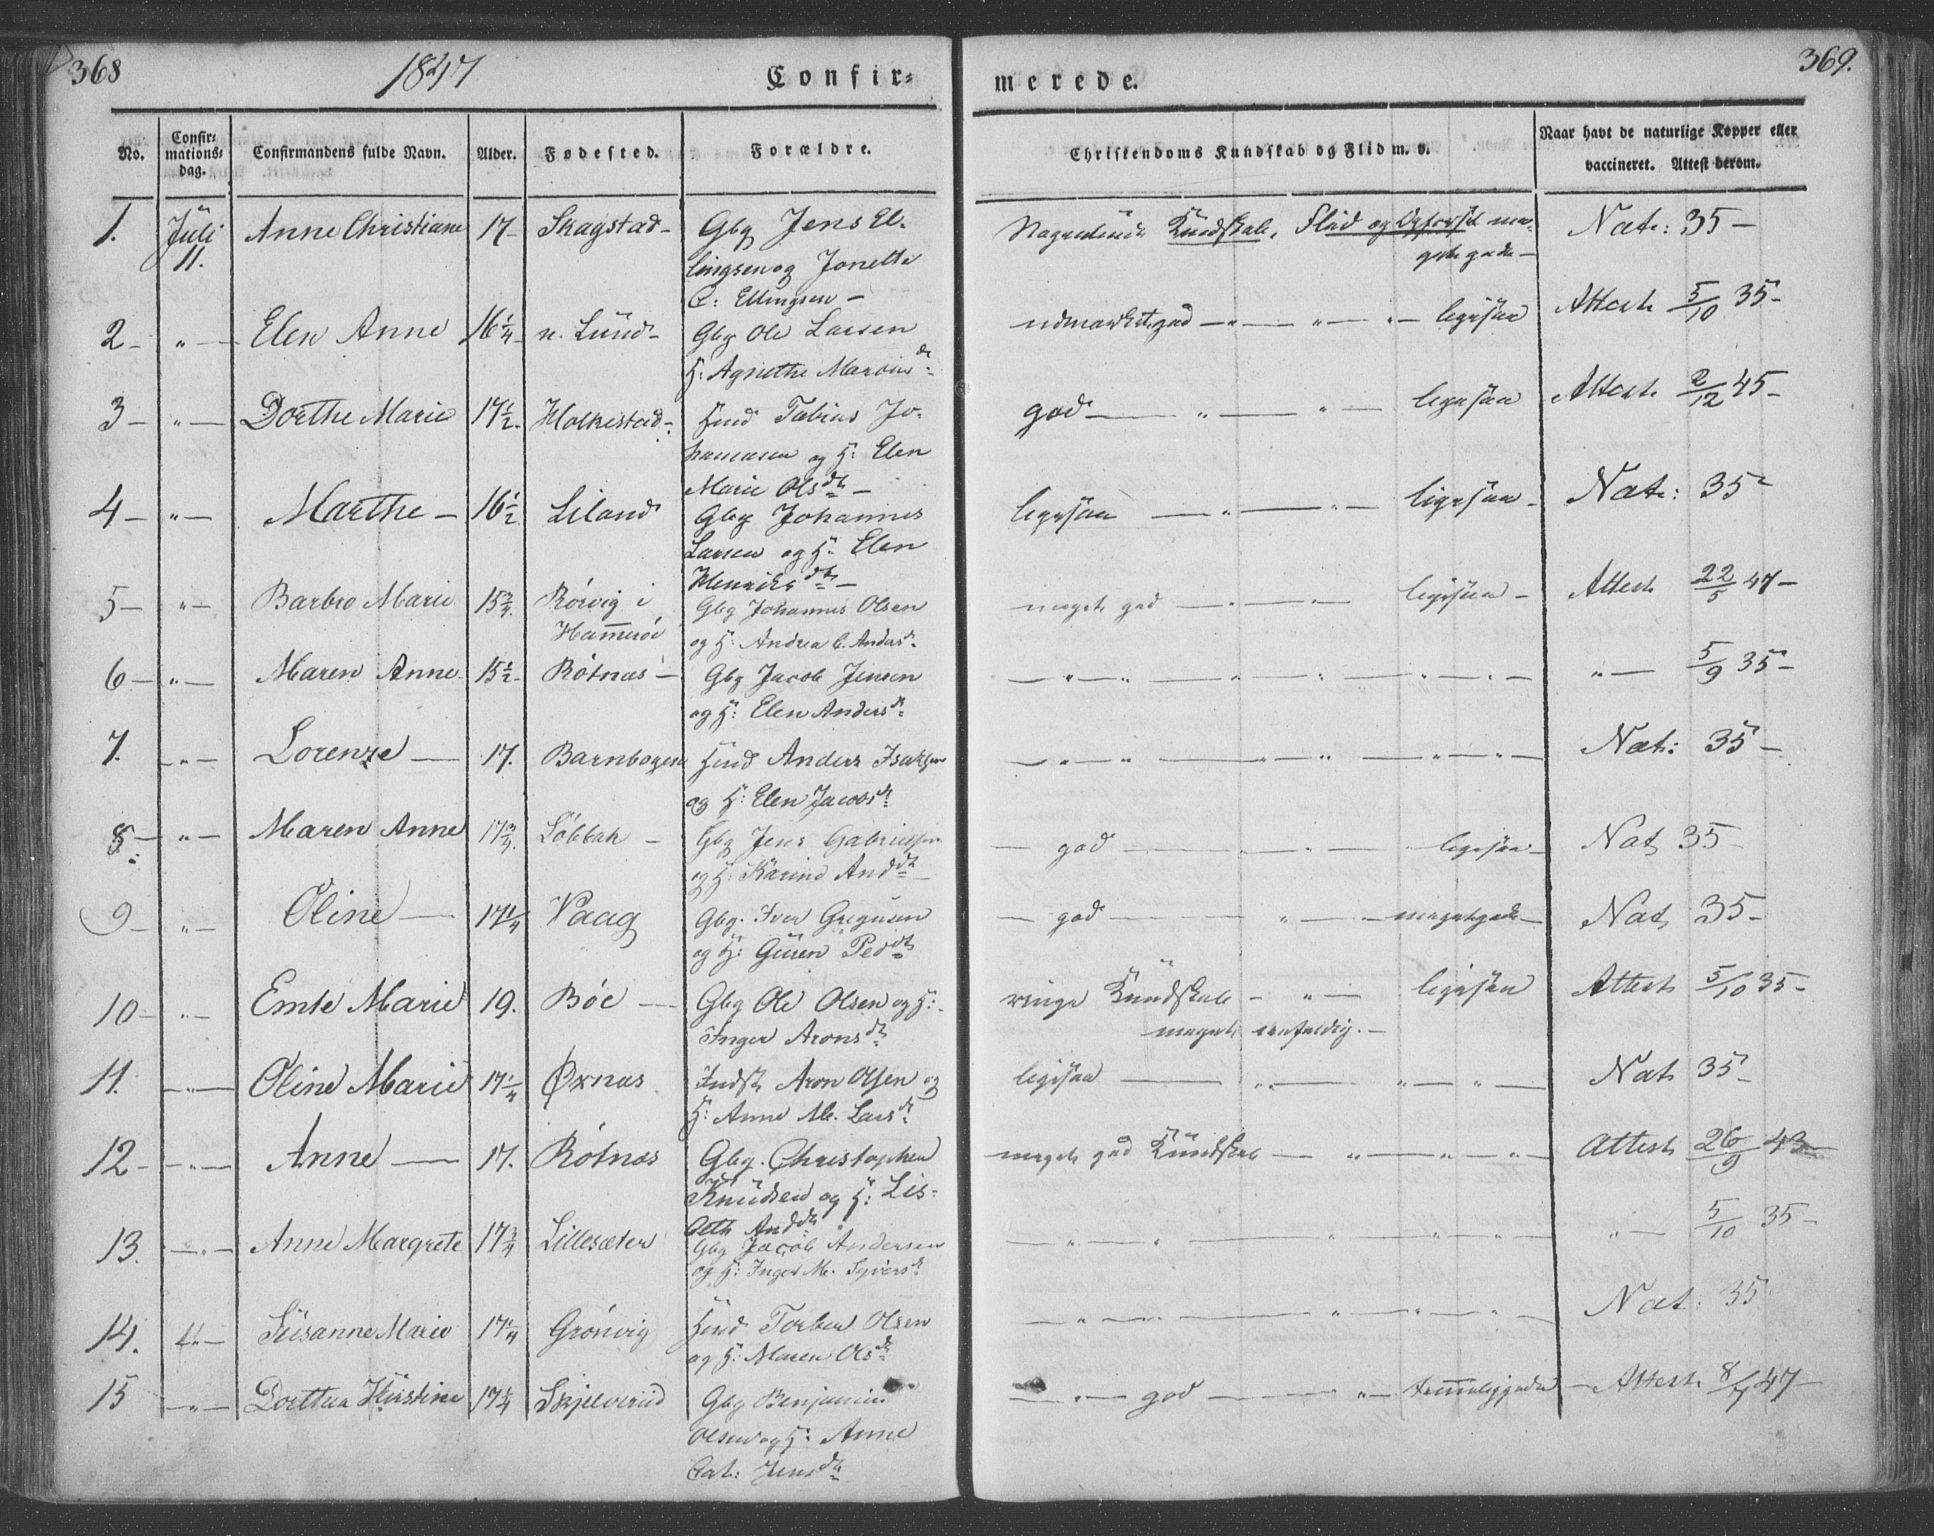 368
1847
Confir=
merede.
369.
No.
Confir=
mations=
dag.
Confirmandens fulde Navn.
Alder.
Fødested.
Forældre.
Christendoms Kundskab og Flid m. v.
Naar havt de naturlige Kopper eller
vaccineret. Attest derom.
1. Juli 11. Anne Christiane 17 - Skagstad - Gbg Jens El-
lingsen og Jonette
C: Ellingsen -
Kundskab, Flid og Opførsel me-
get gode - Nat: 35 -
2 - " - Elen Anne 16 1/4 - n. Lund - Gbg Ole Larsen
H: Agnethe dr
udmærket god - " - " - " - ligesaa Attest 5/10 35 -
3 - " - Dorthe Marie 17 1/2 - Holkestad - Huusd Tobias Jo-
hannesen og H: Elen
Marie Olsdtr -
god - " - " - ligesaa Attest 2/12 45 -
4 - " - Marthe - 16 1/2 Liland Gbg Johannes
Larsen og H: Elen
Henriksdtr -
ligesaa - " - " - ligesaa - Nat: 35
5 - " - Barbro Marie 15 3/4 Rörvig i
Hamerøe
Gbg Johannes Olsen
og H: Andrea C. Andersdr
meget god - " - ligesaa - Attest 22/5 47 -
6 - " - Maren Anne 15 1/2 - Rötnæs - Gbg Jacob Jensen
og H: Elen Andersdr
- " - " - " - " - " - " - " - 5/9 35 -
7. - " - Lorenze - 17. Barnbogen Huusd Anders Isaksen
og H: Elen Jacobsdr
- " - " - " - " - " - " - Nat: 35 -
8 - " - Maren Anne 17 3/4 Löbbak - Gbg Jens Gabrielsen
og H: Karine Anddtr
- god - " - " - ligesaa - Nat 35 -
9 - " - Oline - 17 1/4 Vaag Gbg. Iver
og H: Guren Peddtr
- god - " - " - meget gode - Nat 35 -
10 - " - Emte Marie 19. Böe - Gbg Ole Olsen og H:
Inger Aronsdtr
ringe Kundskab - " - ligesaa
meget enfoldig. -
Attest 5/10 35 -
11. - " - Oline Marie 17 1/4 Øxnæs Indst Aron Olsen og
H: Anne M. Larsdr
ligesaa - " - " - " - Nat 35 -
12 - " - Anne - 17. Rötnæs Gbg. Christopher
Knudsen og H: Lis-
beth Anddtr
meget god Kundskab - " - " - " - Attest 26/9 43
13. - " - Anne Margrete 17 3/4 Lillesæter Gbg Jacob Andersen
og H: Inger M. Syversdr
- " - " - " - " - " - " - 5/10 35 -
14. - " - Susanne Marie 17 1/4 Grönvig Huusd Torber Olsen
og H: Maren Olsdr
- " - " - " - " - " - Nat: 35
15 - " - Dorthea Kirstine 17 1/4 Skjelveriid Gbg Benjamin
Olsen og H: Anne
Cat: Jensdtr
- " - god - " - temmelig gode - Attest 8/7 47 -